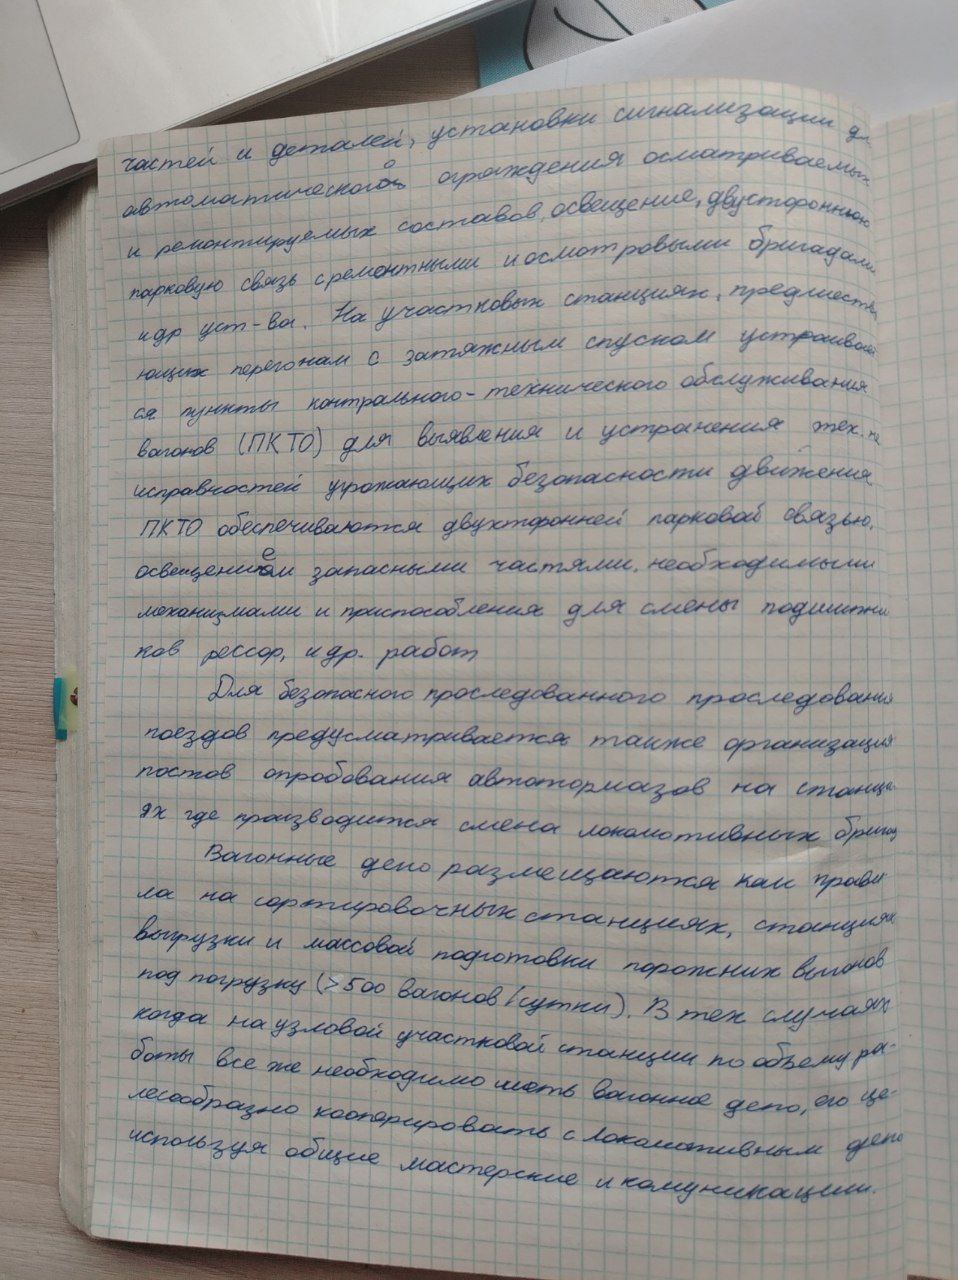 частей и деталей, установки сигнализации дл
автоматического ограждения осматриваемых
и ремонтируемых составов, освещение, двустороннюю
парковую связь с ремонтными и осмотровыми бригадами
и др уст-ва. На участковых станциях, предшеств
ющих перегонам с затяжным спуском устраиваю
ся пункты контрольного-технического обслуживания
вагонов (ПКТО) для выявления и устранения тех. не
исправностей угрожающих безопасности движения
ПКТО обеспечиваются двухторонней парковой связью,
освещением запасными частями, необходимыми
механизмами и приспособления для смены подшипни
ков рессор, и др. работ
Для безопасного проследованного проследования
поездов предусматривается также организация
постов опробования автотормазов на станци
ях где производится смена локомотивных бригад
Вагонные депо размещаются как прави
ла на сортировочных станциях, станциях
выгрузки и массовой подготовки порожних вагонов
под погрузку (>500 вагонов/сутки). В тех случаях
когда на узловой участковой станции по объему ра-
боты все же необходимо иметь вагонное депо, его це-
лесообразно кооперировать с локомотивным депо
используя общие мастерские и комуникации.